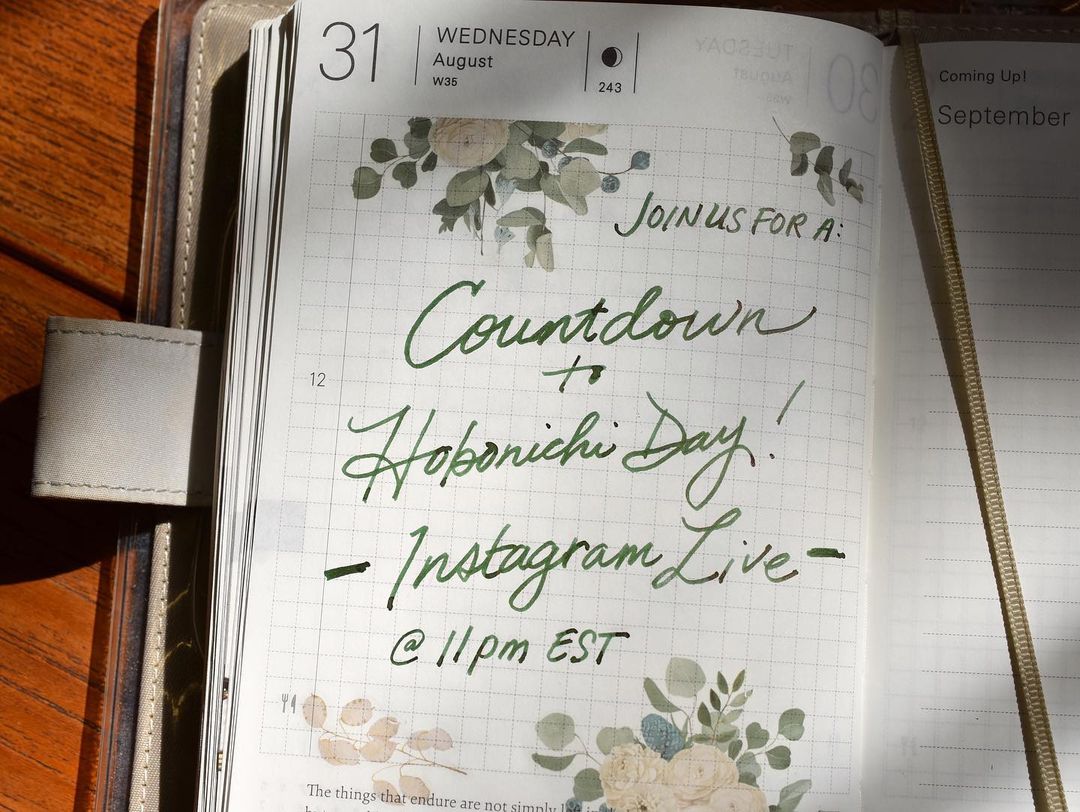 31
WEDNESDAY
August
W35
243
TUESDAY
August
30
Coming Up!
September
JOIN US FOR A:
Countdown
to
12
Hobonichi Day!
- Instagram Live -
@ 11pm EST
The things that endure are not simply